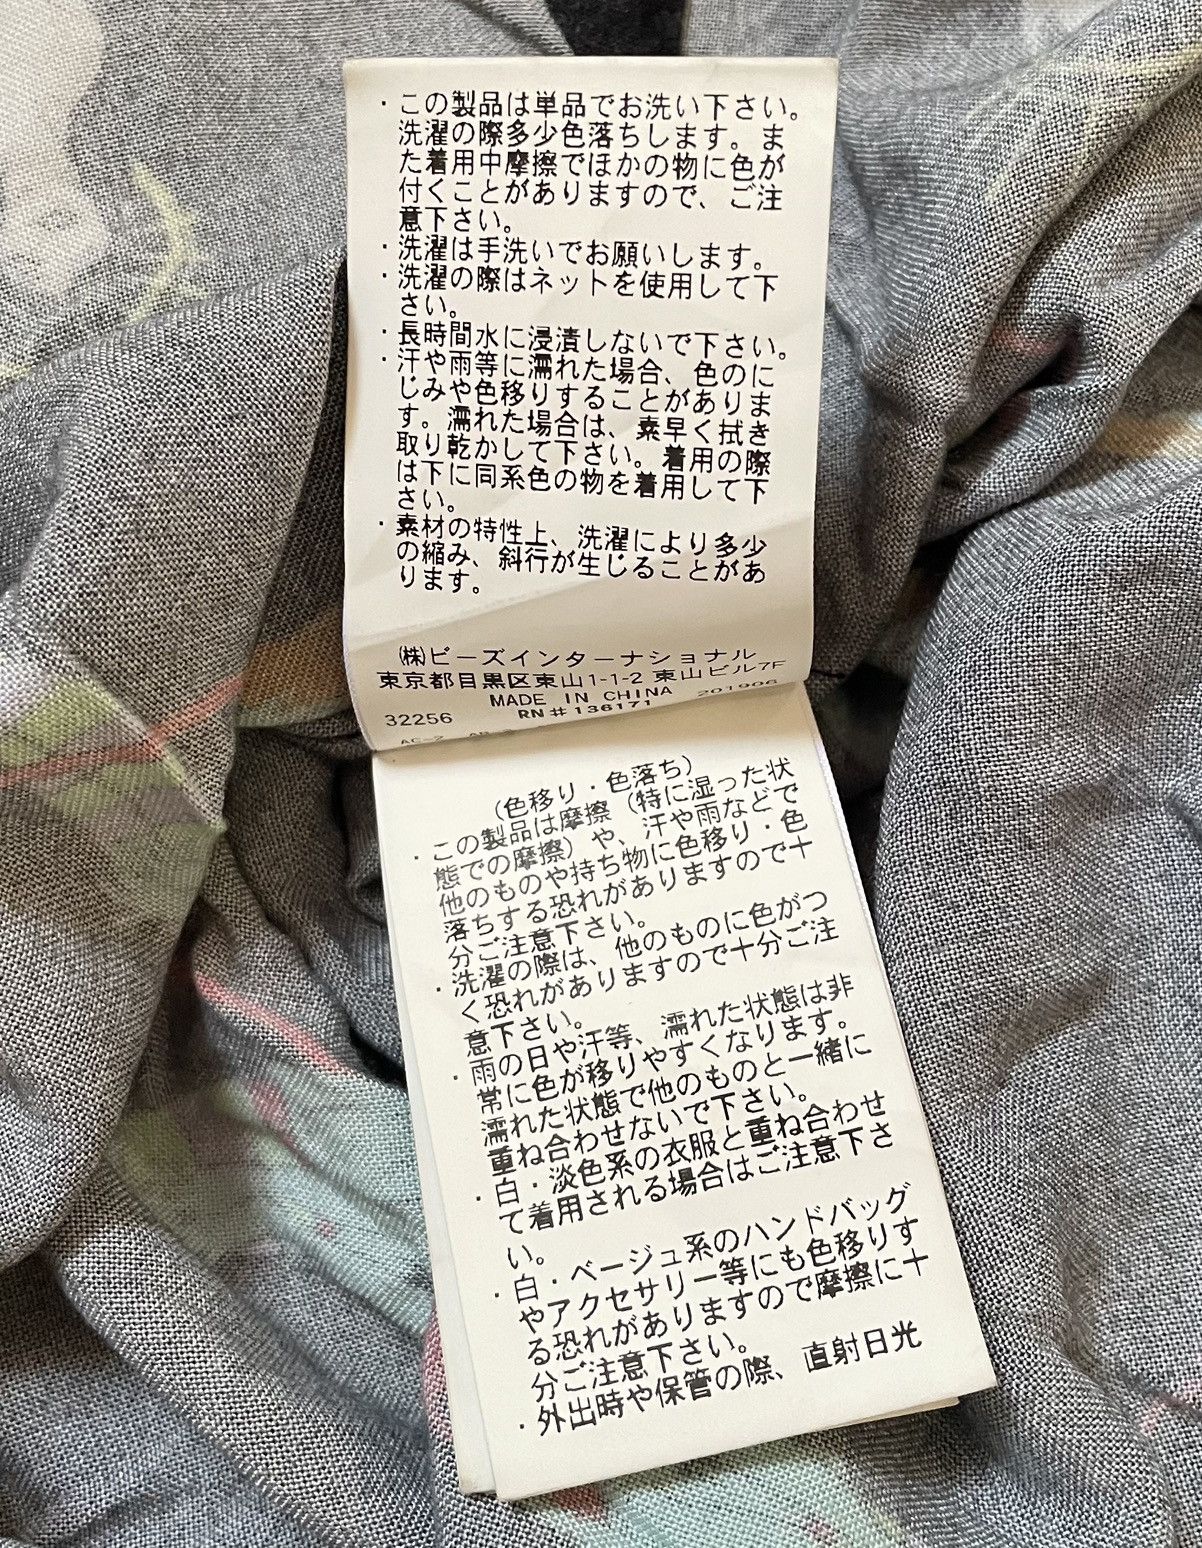 ・この製品は単品でお洗い下さい。
洗濯の際多少色落ちします。ま
た着用中摩擦でほかの物に色が
付くことがありますので、ご注
意下さい。
・洗濯は手洗いでお願いします。
・洗濯の際はネットを使用して下
さい。
・長時間水に浸漬しないで下さい。
・汗や雨等に濡れた場合、色のに
じみや色移りすることがありま
す。濡れた場合は、素早く拭き
取り乾かして下さい。着用の際
は下に同系色の物を着用して下
さい。
・素材の特性上、洗濯により多少
の縮み、斜行が生じることがあ
ります。
㈱ビーズインターナショナル
東京都目黒区東山1-1-2 東山ビル7F
MADE IN CHINA 201906
32256 RN#136171
(色移り・色落ち)
・この製品は摩擦(特に湿った状
態での摩擦)や、汗や雨などで
他のものや持ち物に色移り・色
落ちする恐れがありますので十
分ご注意下さい。
・洗濯の際は、他のものに色がつ
く恐れがありますので十分ご注
意下さい。
・雨の日や汗等、濡れた状態は非
常に色が移りやすくなります。
濡れた状態で他のものと一緒に
重ね合わせないで下さい。
・白・淡色系の衣服と重ね合わせ
て着用される場合はご注意下さ
い。
・白・ベージュ系のハンドバッグ
やアクセサリー等にも色移りす
る恐れがありますので摩擦に十
分ご注意下さい。
・外出時や保管の際、直射日光